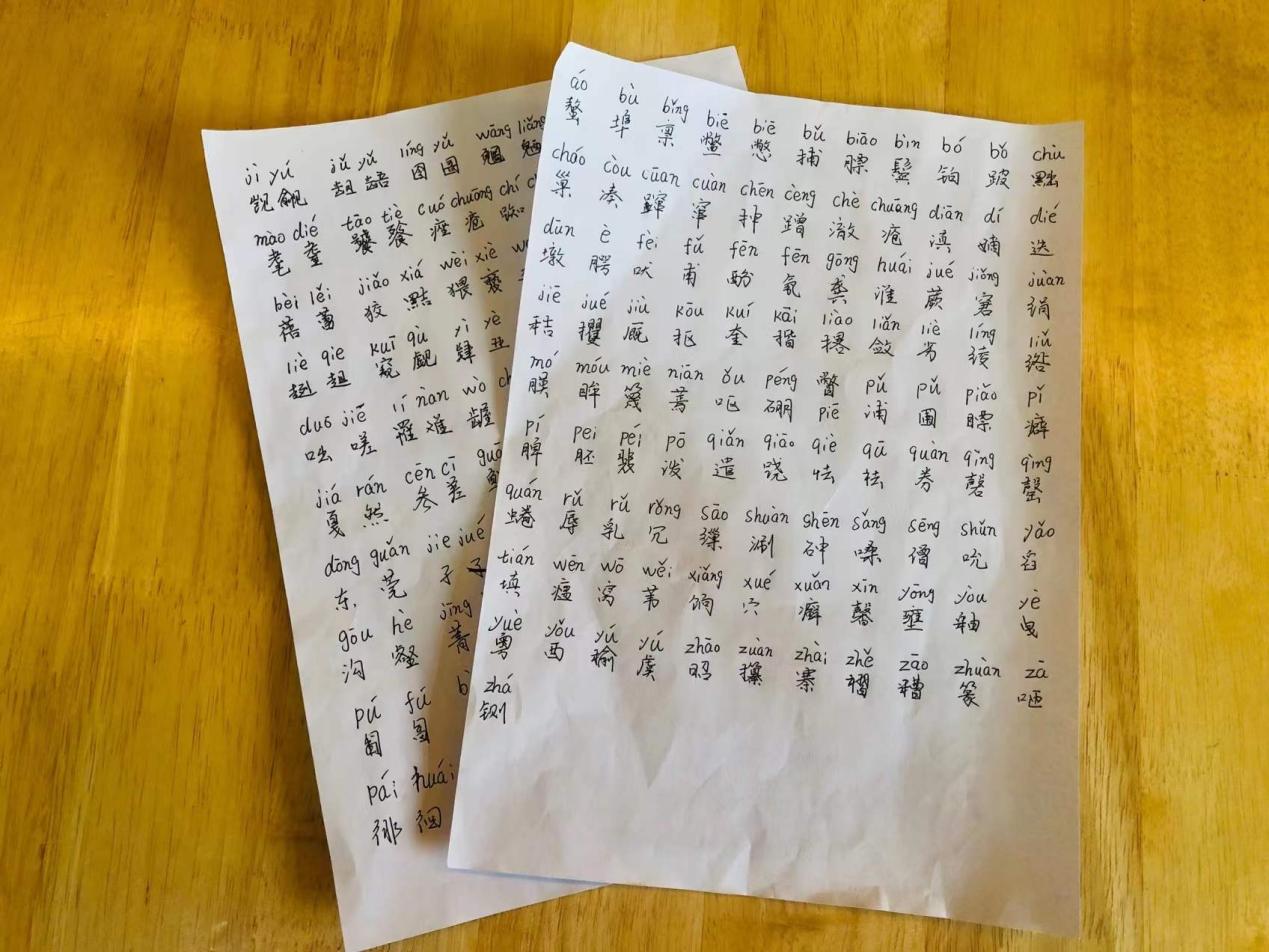 jì yú jǔ yǔ líng yǔ wāng liǎng
觊觎 龃龉 囹圄 魍魉
mào dié tāo tiè cuó chuāng chí
耄耋 饕餮 痤疮 踟
bèi lěi jiǎo xiá wèi xiè
蓓蕾 狡黠 猥亵
liè qie kuī qù yì yè
趔趄 窥觑 肄业
duō jiē lí nàn wò
咄嗟 罹难 龌
jiá rán cēn cī guā
戛然 参差
dōng guǎn jie jué
东莞 孑孓
gōu hè jīng
沟壑 菁
pú fú
匍匐
pái huái
徘徊
áo bù bǐng biē biē bǔ biāo bìn bó bǒ chù
螯 埠 禀 鳖 憋 捕 膘 鬓 钹 跛 黜
cháo còu cuān cuàn chēn cèng chè chuāng diān dí dié
巢 凑 蹿 窜 抻 蹭 澈 疮 滇 嫡 迭
dūn è fèi fǔ fēn fēn gōng huái jué jiǒng juàn
墩 腭 吠 甫 酚 氛 龚 淮 蕨 窘 绢
jiē jué jiù kōu kuí kāi liào liǎn liè líng liǔ
秸 攫 厩 抠 奎 揩 撂 敛 劣 绫 绺
mó móu miè niān ǒu péng 瞥 pǔ pǔ piǎo pǐ
膜 眸 篾 蔫 呕 硼 piē 浦 圃 瞟 癖
pí pei péi pō qiǎn qiāo qiè qū quàn qìng qìng
脾 胚 裴 泼 遣 跷 怯 祛 券 磬 罄
quán rǔ rǔ rǒng sāo shuàn shēn sǎng sēng shǔn yǎo
蜷 辱 乳 冗 缫 涮 砷 嗓 僧 吮 舀
tián wēn wō wěi xiǎng xué xuǎn xīn yōng yòu yè
填 瘟 窝 苇 饷 穴 癣 馨 壅 釉 曳
yuè yǒu yú yú zhāo zuàn zhài zhě zāo zhuàn zā
粤 酉 榆 虞 昭 攥 寨 褶 糟 篆 咂
zhá
铡